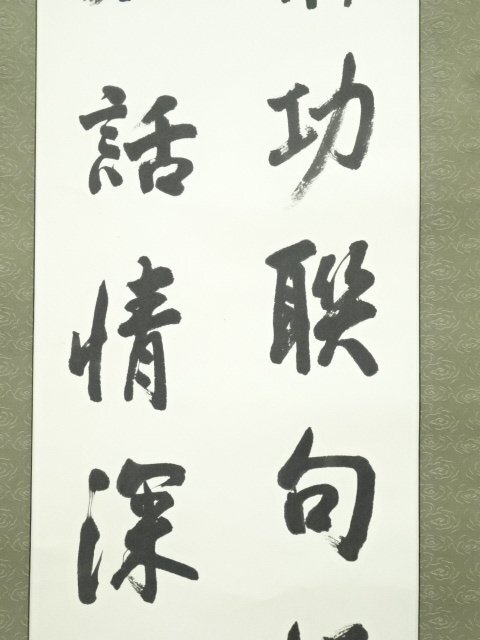 功聯句
話情深